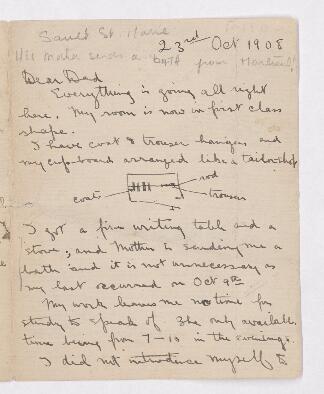 Sault St. Marie
23rd Oct 1908
His mother sends a bath from Montreal!
Dear Dad
Everything is going all right
here. My room is now in first class
shape.
I have coat & trouser hangers and
my cup-board arranged like a tailor shop
rod
coats
trousers
I got a fine writing table and a
stove, and Mother is sending me a
bath and it is not unnecessary as
my last occurred on Oct 9th
My work leaves me no time for
study to speak of the only available
time being from 7-10 in the evenings.
I did not introduce myself to